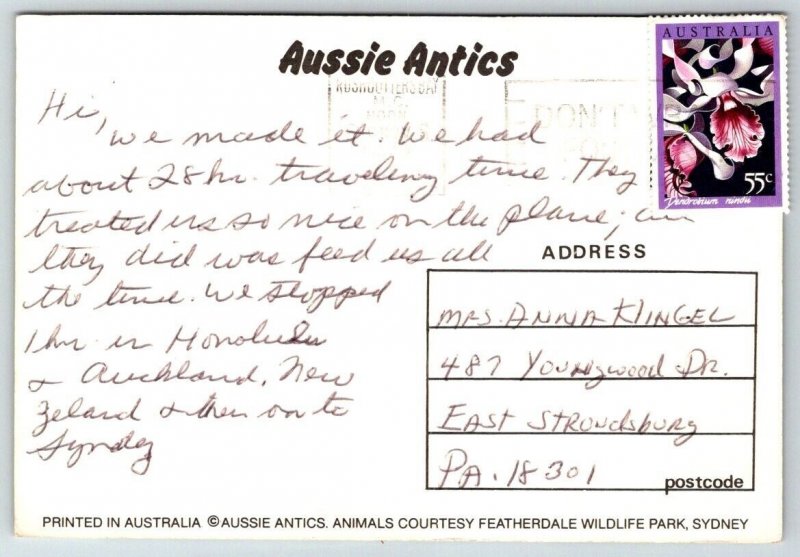 Aussie Antics
AUSTRALIA
55c
Dendrobium nindii
RUSHCUTTERS BAY
DON'T
Hi,
we made it. We had
about 28 hr. traveling time. They
treated us so nice on the plane; all
they did was feed us all
the time. We stopped
1 hr. in Honolulu
& Auckland, New
Zeland & then on to
Synday
ADDRESS
MRS. ANNA KlINGEL
487 Youngwood Dr.
EAST STROUDSBURG
PA. 18301
postcode
PRINTED IN AUSTRALIA ©AUSSIE ANTICS. ANIMALS COURTESY FEATHERDALE WILDLIFE PARK, SYDNEY